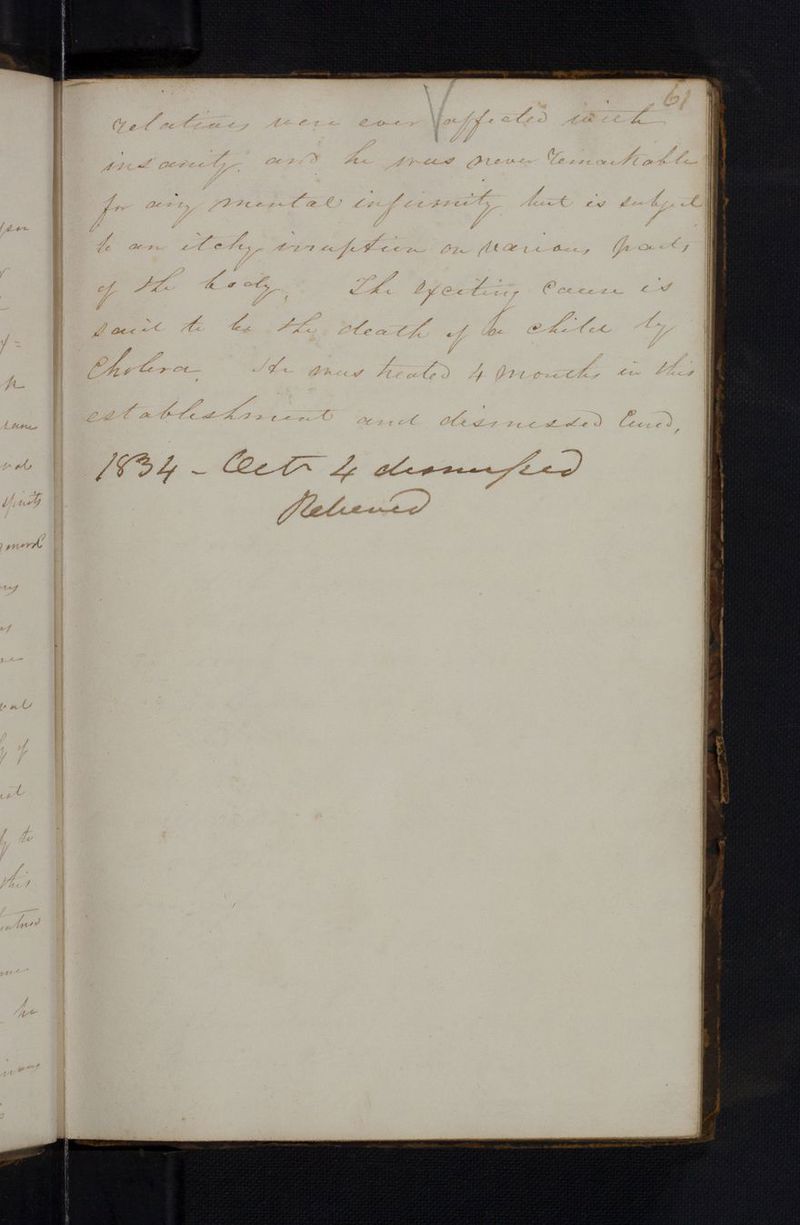 61
relations were ever affected with
insanity, and he was never remarkable
for any mental infirmity but is subject
to an itchy irruption on various parts
of the body. The exciting cause is
said to be the death of a child by
Cholera. He was treated 4 months in this
establishment and dismissed Cured,
1834 - Octr 4 dismissed
Relieved